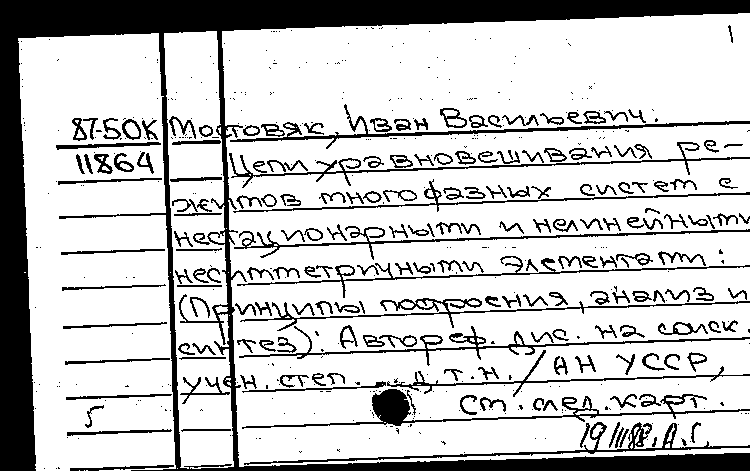 1
87-5OK Мостовяк, Иван Васильевич.
11864 Цепи уравновешивания ре-
жимов многофазных систем с
нестационарными и нелинейными
несимметричными элементами:
(Принципы построения, анализ и
синтез): Автореф. дис. на соиск.
учен. степ. ... д.т.н. / АН УССР,
5 См. след. карт.